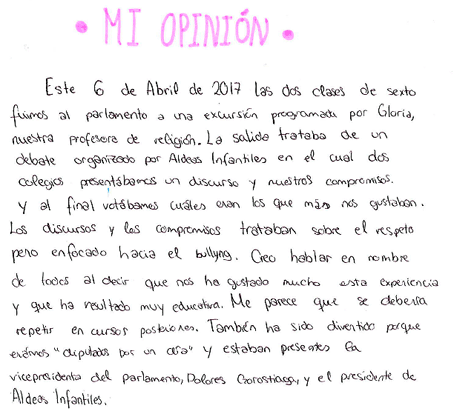 • MI OPINIÓN •
Este 6 de Abril de 2017 las dos clases de sexto
fuimos al parlamento a una excursión programada por Gloria,
nuestra profesora de religión. La salida trataba de un
debate organizado por Aldeas Infantiles en el cual dos
colegios presentábamos un discurso y nuestros compromisos.
y al final votábamos cuáles eran los que más nos gustaban.
Los discursos y los compromisos trataban sobre el respeto
pero enfocado hacia el bullyng. Creo hablar en nombre
de todos al decir que nos ha gustado mucho esta experiencia
y que ha resultado muy educativa. Me parece que se debería
repetir en cursos posteriores. También ha sido divertido porque
eramos "diputados por un día" y estaban presentes la
vicepresidenta del parlamento, Dolores Gorostiaga, y el presidente de
Aldeas Infantiles.